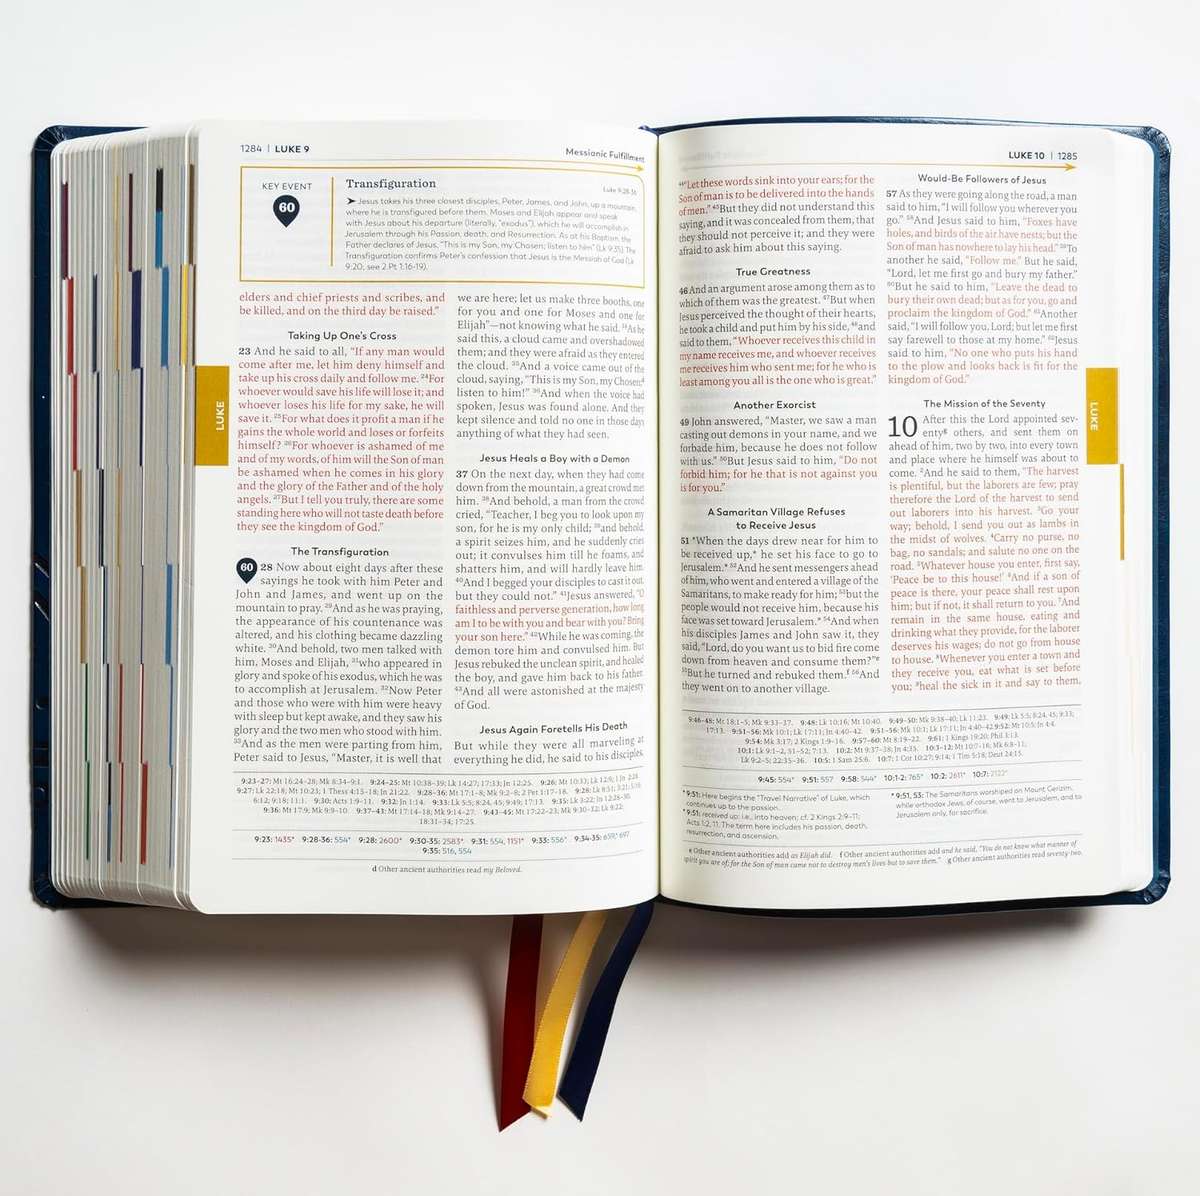 1284 | LUKE 9
Messianic Fulfillment
KEY EVENT
60
Transfiguration
Luke 9:28-36
➤ Jesus takes his three closest disciples, Peter, James, and John, up a mountain,
where he is transfigured before them. Moses and Elijah appear and speak
with Jesus about his departure (literally, "exodus"), which he will accomplish in
Jerusalem through his Passion, death, and Resurrection. As at his Baptism, the
Father declares of Jesus, "This is my Son, my Chosen; listen to him" (Lk 9:35). The
Transfiguration confirms Peter's confession that Jesus is the Messiah of God (Lk
9:20; see 2 Pt 1:16-19).
LUKE
elders and chief priests and scribes, and
be killed, and on the third day be raised."
Taking Up One's Cross
23 And he said to all, "If any man would
come after me, let him deny himself and
take up his cross daily and follow me. 24For
whoever would save his life will lose it; and
whoever loses his life for my sake, he will
save it. 25For what does it profit a man if he
gains the whole world and loses or forfeits
himself? 26For whoever is ashamed of me
and of my words, of him will the Son of man
be ashamed when he comes in his glory
and the glory of the Father and of the holy
angels. 27But I tell you truly, there are some
standing here who will not taste death before
they see the kingdom of God."
The Transfiguration
60 28 Now about eight days after these
sayings he took with him Peter and
John and James, and went up on the
mountain to pray. 29And as he was praying,
the appearance of his countenance was
altered, and his clothing became dazzling
white. 30And behold, two men talked with
him, Moses and Elijah, 31who appeared in
glory and spoke of his exodus, which he was
to accomplish at Jerusalem. 32Now Peter
and those who were with him were heavy
with sleep but kept awake, and they saw his
glory and the two men who stood with him.
33And as the men were parting from him,
Peter said to Jesus, "Master, it is well that
we are here; let us make three booths, one
for you and one for Moses and one for
Elijah"—not knowing what he said. 34As he
said this, a cloud came and overshadowed
them; and they were afraid as they entered
the cloud. 35And a voice came out of the
cloud, saying, "This is my Son, my Chosen;d
listen to him!" 36And when the voice had
spoken, Jesus was found alone. And they
kept silence and told no one in those days
anything of what they had seen.
Jesus Heals a Boy with a Demon
37 On the next day, when they had come
down from the mountain, a great crowd met
him. 38And behold, a man from the crowd
cried, "Teacher, I beg you to look upon my
son, for he is my only child; 39and behold,
a spirit seizes him, and he suddenly cries
out; it convulses him till he foams, and
shatters him, and will hardly leave him.
40And I begged your disciples to cast it out,
but they could not." 41Jesus answered, "O
faithless and perverse generation, how long
am I to be with you and bear with you? Bring
your son here." 42While he was coming, the
demon tore him and convulsed him. But
Jesus rebuked the unclean spirit, and healed
the boy, and gave him back to his father.
43And all were astonished at the majesty
of God.
Jesus Again Foretells His Death
But while they were all marveling at
everything he did, he said to his disciples,
9:23-27: Mt 16:24-28; Mk 8:34-9:1. 9:24-25: Mt 10:38-39; Lk 14:27; 17:33; Jn 12:25. 9:26: Mt 10:33; Lk 12:9; 1 Jn 2:28.
9:27: Lk 22:18; Mt 10:23; 1 Thess 4:15-18; Jn 21:22. 9:28-36: Mt 17:1-8; Mk 9:2-8; 2 Pet 1:17-18. 9:28: Lk 8:51; 3:21; 5:16;
6:12; 9:18; 11:1. 9:30: Acts 1:9-11. 9:32: Jn 1:14. 9:33: Lk 5:5; 8:24, 45; 9:49; 17:13. 9:35: Lk 3:22; Jn 12:28-30.
9:36: Mt 17:9; Mk 9:9-10. 9:37-43: Mt 17:14-18; Mk 9:14-27. 9:43-45: Mt 17:22-23; Mk 9:30-32; Lk 9:22;
18:31-34; 17:25.
9:23: 1435* 9:28-36: 554* 9:28: 2600* 9:30-35: 2583* 9:31: 554, 1151* 9:33: 556* 9:34-35: 659,* 697
9:35: 516, 554
d Other ancient authorities read my Beloved.
LUKE 10 | 1285
44"Let these words sink into your ears; for the
Son of man is to be delivered into the hands
of men." 45But they did not understand this
saying, and it was concealed from them, that
they should not perceive it; and they were
afraid to ask him about this saying.
True Greatness
46 And an argument arose among them as to
which of them was the greatest. 47But when
Jesus perceived the thought of their hearts,
he took a child and put him by his side, 48and
said to them, "Whoever receives this child in
my name receives me, and whoever receives
me receives him who sent me; for he who is
least among you all is the one who is great."
Another Exorcist
49 John answered, "Master, we saw a man
casting out demons in your name, and we
forbade him, because he does not follow
with us." 50But Jesus said to him, "Do not
forbid him; for he that is not against you
is for you."
A Samaritan Village Refuses
to Receive Jesus
51 *When the days drew near for him to
be received up,* he set his face to go to
Jerusalem.* 52And he sent messengers ahead
of him, who went and entered a village of the
Samaritans, to make ready for him; 53but the
people would not receive him, because his
face was set toward Jerusalem.* 54And when
his disciples James and John saw it, they
said, "Lord, do you want us to bid fire come
down from heaven and consume them?"e
55But he turned and rebuked them.f 56And
they went on to another village.
Would-Be Followers of Jesus
57 As they were going along the road, a man
said to him, "I will follow you wherever you
go." 58And Jesus said to him, "Foxes have
holes, and birds of the air have nests; but the
Son of man has nowhere to lay his head." 59To
another he said, "Follow me." But he said,
"Lord, let me first go and bury my father."
60But he said to him, "Leave the dead to
bury their own dead; but as for you, go and
proclaim the kingdom of God." 61Another
said, "I will follow you, Lord; but let me first
say farewell to those at my home." 62Jesus
said to him, "No one who puts his hand
to the plow and looks back is fit for the
kingdom of God."
The Mission of the Seventy
10 After this the Lord appointed sev-
entyg others, and sent them on
ahead of him, two by two, into every town
and place where he himself was about to
come. 2And he said to them, "The harvest
is plentiful, but the laborers are few; pray
therefore the Lord of the harvest to send
out laborers into his harvest. 3Go your
way; behold, I send you out as lambs in
the midst of wolves. 4Carry no purse, no
bag, no sandals; and salute no one on the
road. 5Whatever house you enter, first say,
'Peace be to this house!' 6And if a son of
peace is there, your peace shall rest upon
him; but if not, it shall return to you. 7And
remain in the same house, eating and
drinking what they provide, for the laborer
deserves his wages; do not go from house
to house. 8Whenever you enter a town and
they receive you, eat what is set before
you; 9heal the sick in it and say to them,
LUKE
9:46-48: Mt 18:1-5; Mk 9:33-37. 9:48: Lk 10:16; Mt 10:40. 9:49-50: Mk 9:38-40; Lk 11:23. 9:49: Lk 5:5; 8:24, 45; 9:33;
17:13. 9:51-56: Mk 10:1; Lk 17:11; Jn 4:40-42. 9:52: Mt 10:5; Jn 4:4.
9:54: Mk 3:17; 2 Kings 1:9-16. 9:57-60: Mt 8:19-22. 9:61: 1 Kings 19:20; Phil 3:13.
10:1: Lk 9:1-2, 51-52; 7:13. 10:2: Mt 9:37-38; Jn 4:35. 10:3-12: Mt 10:7-16; Mk 6:8-11;
Lk 9:2-5; 22:35-36. 10:5: 1 Sam 25:6. 10:7: 1 Cor 10:27; 9:14; 1 Tim 5:18; Deut 24:15.
9:45: 554* 9:51: 557 9:58: 544* 10:1-2: 765* 10:2: 2611* 10:7: 2122*
* 9:51: Here begins the "Travel Narrative" of Luke, which
continues up to the passion.
* 9:51: received up: i.e., into heaven; cf. 2 Kings 2:9-11;
Acts 1:2, 11. The term here includes his passion, death,
resurrection, and ascension.
* 9:51, 53: The Samaritans worshiped on Mount Gerizim,
while orthodox Jews, of course, went to Jerusalem, and to
Jerusalem only, for sacrifice.
e Other ancient authorities add as Elijah did. f Other ancient authorities add and he said, "You do not know what manner of
spirit you are of; for the Son of man came not to destroy men's lives but to save them." g Other ancient authorities read seventy-two.